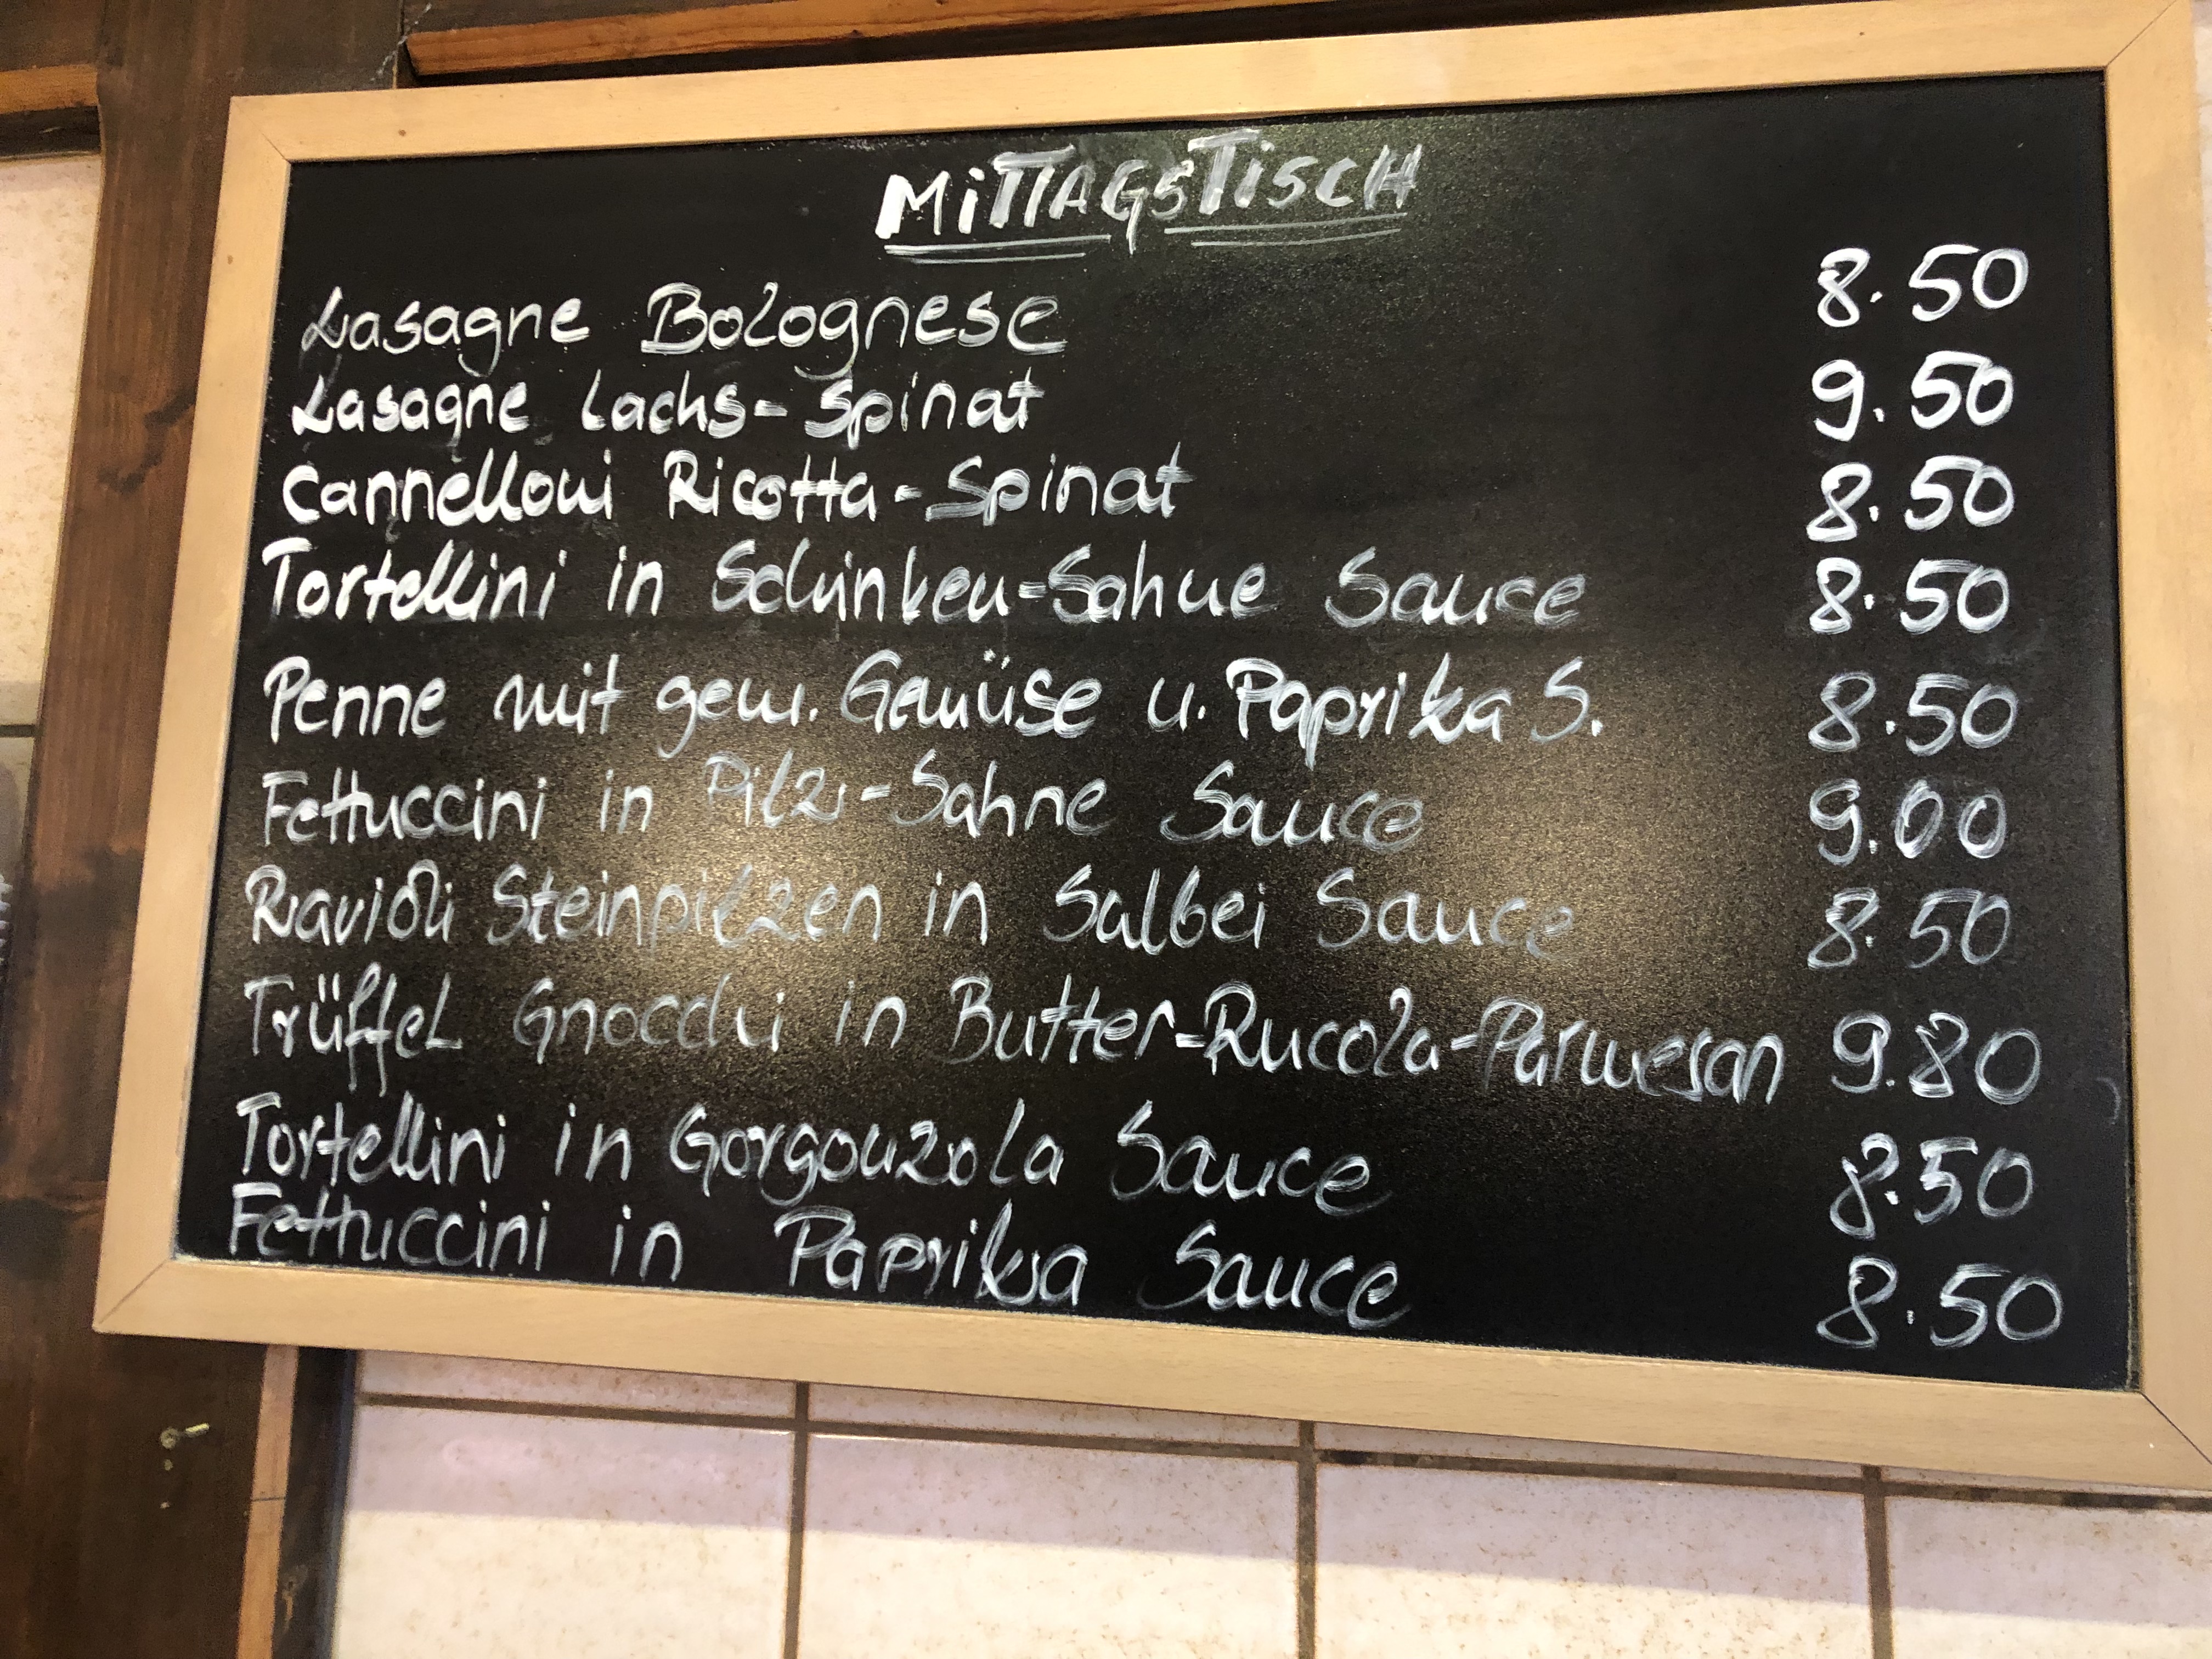 MiTTAGSTiSCH
Lasagne Bolognese 8.50
Lasagne Lachs-Spinat 9.50
Cannelloni Ricotta-Spinat 8.50
Tortellini in Schinken-Sahne Sauce 8.50
Penne mit gem. Gemüse u. Paprika S. 8.50
Fettuccini in Pilz-Sahne Sauce 9.00
Ravioli Steinpilzen in Salbei Sauce 8.50
Trüffel Gnocchi in Butter-Rucola-Parmesan 9.80
Tortellini in Gorgonzola Sauce 8.50
Fettuccini in Paprika Sauce 8.50